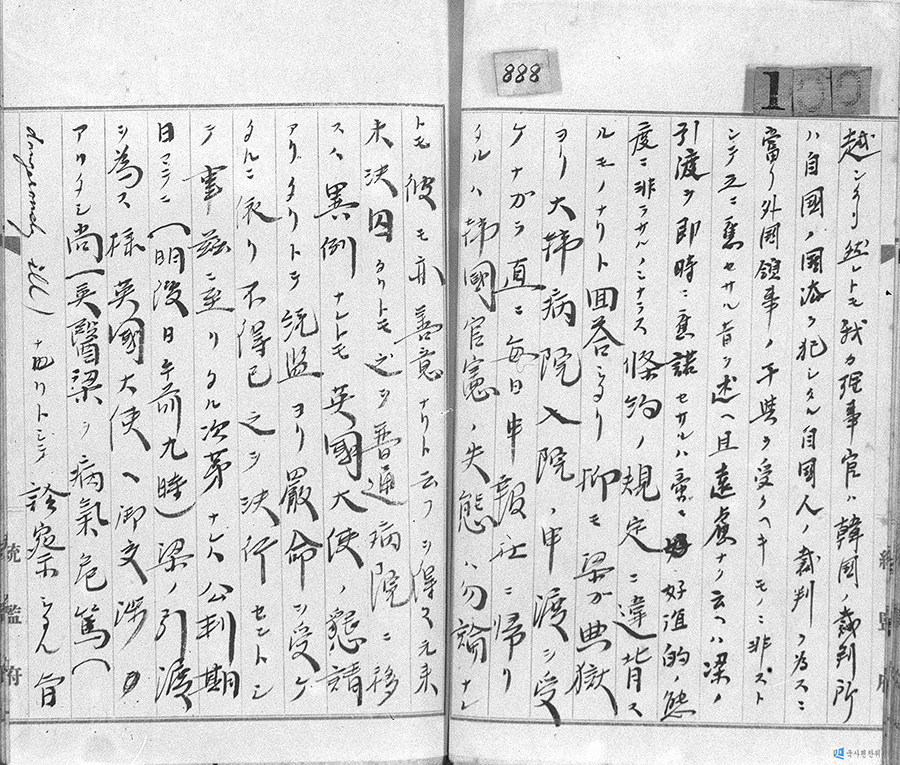 888
1
越シタリ然レトモ我カ理事官ハ韓国ノ裁判所
ハ自國ノ国法ヲ犯シタル自国人ノ裁判ヲ為スニ
當リ外国領事ノ干與ヲ受クヘキモノニ非スト
シテ之ニ應セサル旨ヲ述ヘ且遠慮ナク云ヘハ梁ノ
引渡ヲ即時ニ應諾セサルハ啻ニ好誼的ノ態
度ニ非ラサルノミナラス條約ノ規定ニ違背ス
ルモノナリト回答セリ抑モ梁カ典獄
ヨリ大韓病院入院ノ申渡シヲ受
ケナカラ直ニ毎日申報社ニ帰リ
タルハ韓國官憲ノ失態ハ勿論ナレ
トモ彼モ亦善意ナリト云フヲ得ス元来
未決囚タリトモ之ヲ普通病院ニ移
スハ異例ナレトモ英國大使ノ懇請
アリタリトテ統監ヨリ嚴命ヲ受ケ
タルニ依リ不得已之ヲ決行セントシ
テ事茲ニ至リタル次第ナレハ公判期
日マテニ(明後日午前九時)梁ノ引渡
ヲ為ス様英國大使ヘ御交渉
アリタシ尚一英醫梁ノ病氣危篤(
dangerously ill)ナリトシテ診察シタル旨
統監府
統監府
국사편찬위